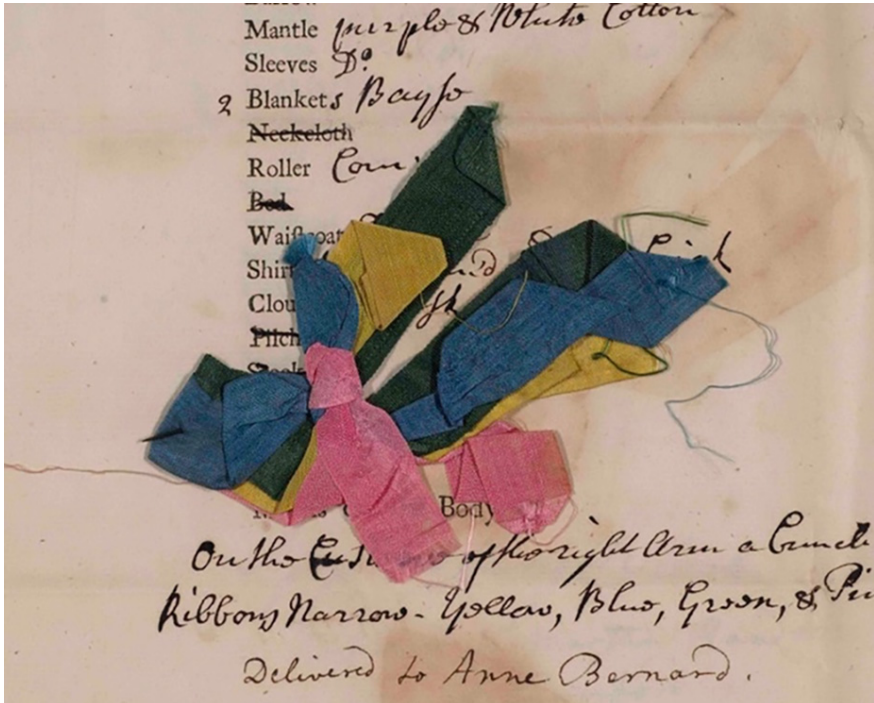 Mantle purple & White Cotton
Sleeves Do.
2 Blankets Bayse
Neckcloth
Roller
Bed
Waistcoat
Shir
Clou
Pilch
Body
On the of the right Arm a Bunch
Ribbons Narrow - Yellow, Blue, Green, & Pin
Delivered to Anne Bernard.